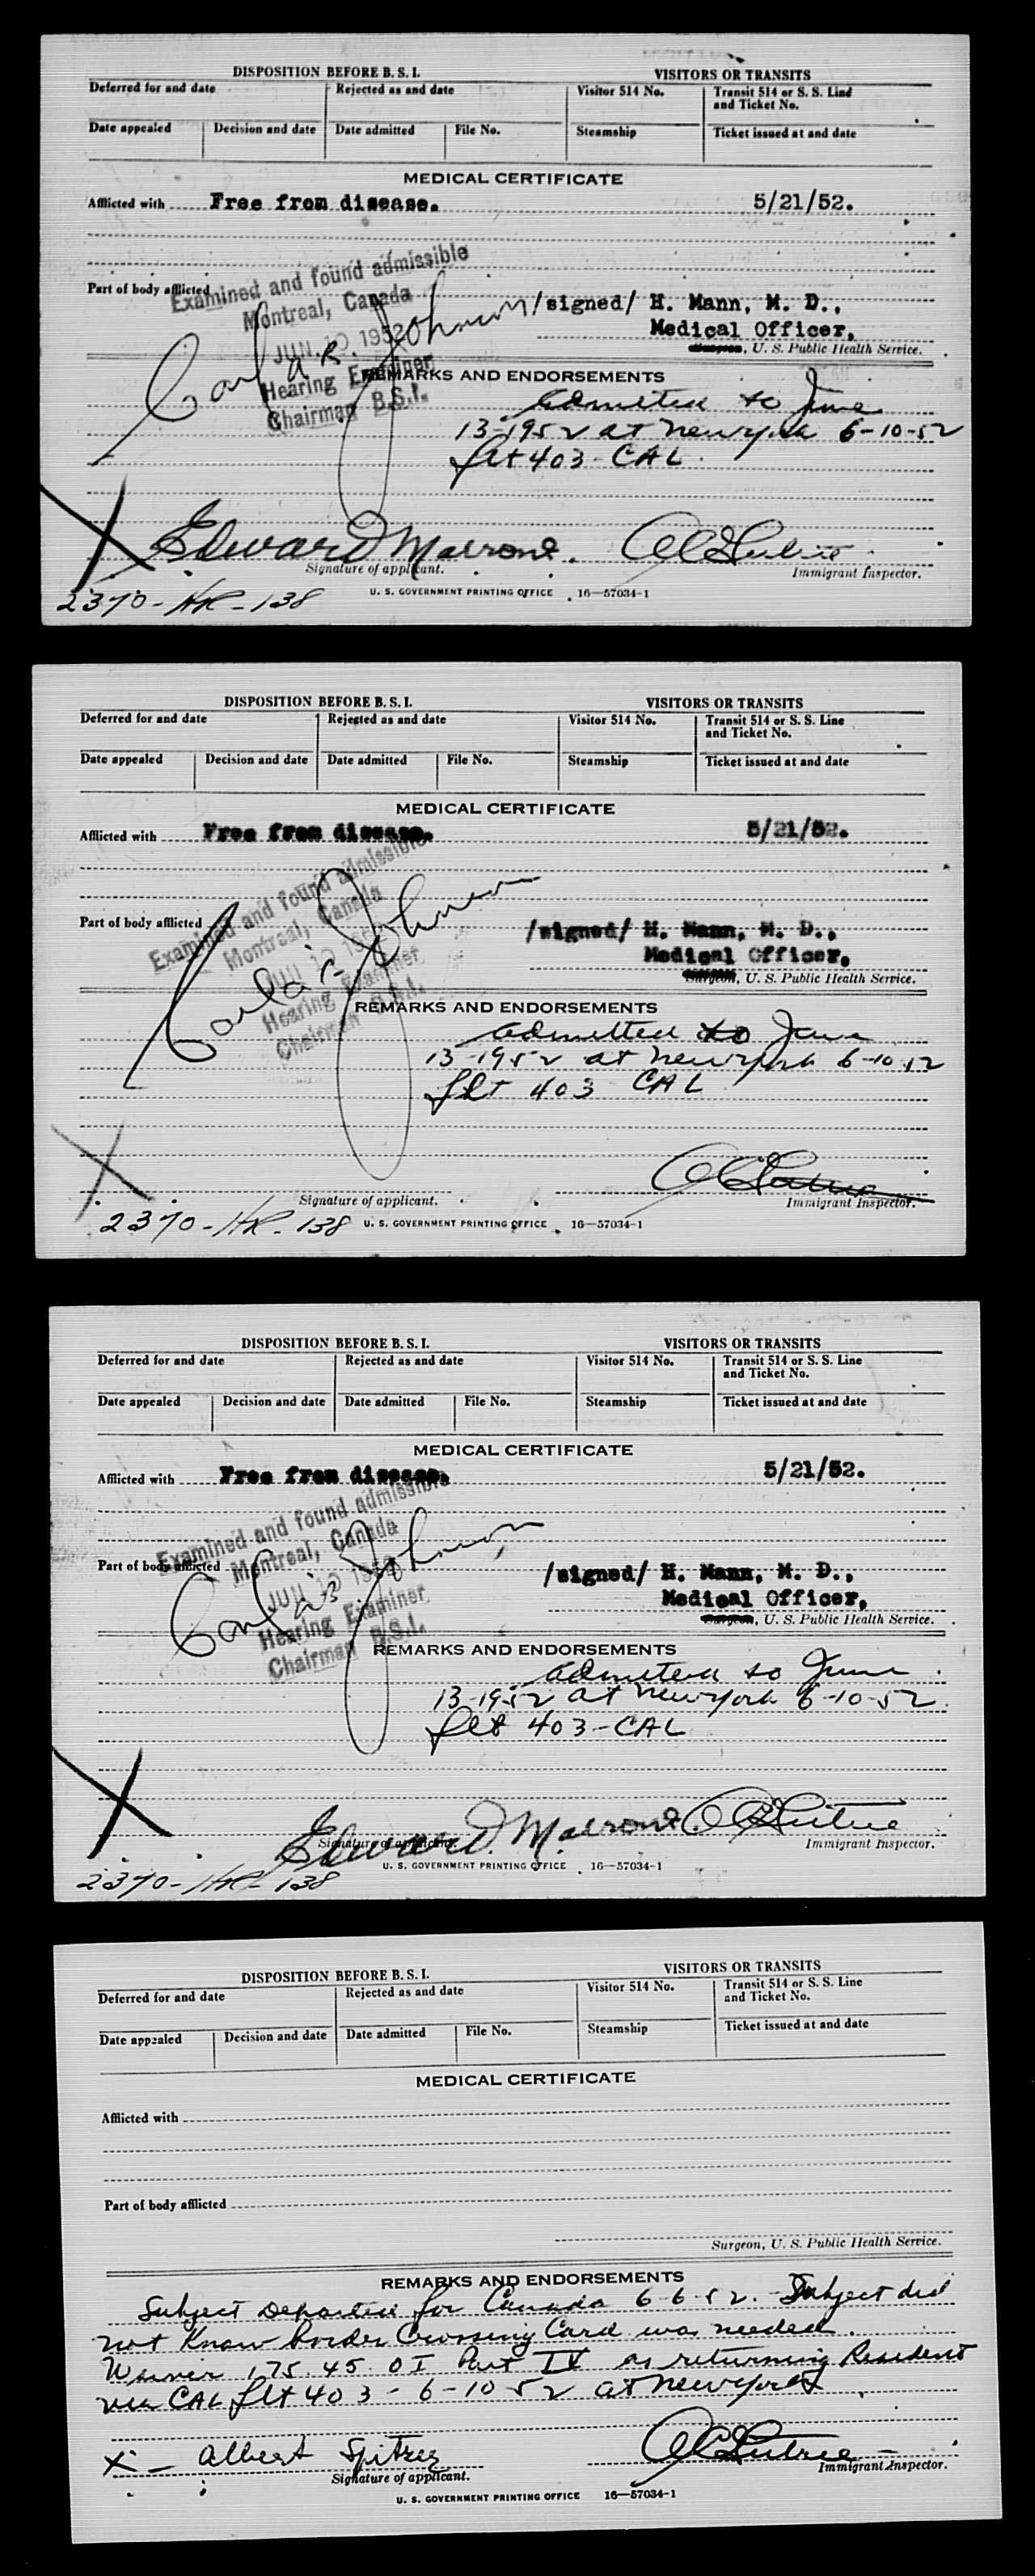 DISPOSITION BEFORE B. S. I.
VISITORS OR TRANSITS
Deferred for and date
Rejected as and date
Visitor 514 No.
Transit 514 or S. S. Line
and Ticket No.
Date appealed
Decision and date
Date admitted
File No.
Steamship
Ticket issued at and date
MEDICAL CERTIFICATE
Afflicted with Free from disease. 5/21/52.
Part of body afflicted
Examined and found admissible
Montreal, Canada
JUN 10 1952
Hearing Examiner
Chairman B.S.I.
Carl R. Johnson
/signed/ H. Mann, M. D.,
Medical Officer,
Surgeon, U. S. Public Health Service.
REMARKS AND ENDORSEMENTS
admitted to June
13-1952 at New York 6-10-52
flt 403 - CAL.
Edward Malrone.
Signature of applicant.
Immigrant Inspector.
2370-HR-138
U. S. GOVERNMENT PRINTING OFFICE 16—57034-1
DISPOSITION BEFORE B. S. I.
VISITORS OR TRANSITS
Deferred for and date
Rejected as and date
Visitor 514 No.
Transit 514 or S. S. Line
and Ticket No.
Date appealed
Decision and date
Date admitted
File No.
Steamship
Ticket issued at and date
MEDICAL CERTIFICATE
Afflicted with Free from disease. 5/21/52.
Part of body afflicted
Examined and found admissible
Montreal, Canada
JUN 10 1952
Hearing Examiner
Chairman B.S.I.
Carl R. Johnson
/signed/ H. Mann, M. D.,
Medical Officer,
Surgeon, U. S. Public Health Service.
REMARKS AND ENDORSEMENTS
admitted to June
13-1952 at New York 6-10-52
flt 403 CAL
Signature of applicant.
Immigrant Inspector.
2370-HR-138
U. S. GOVERNMENT PRINTING OFFICE 16—57034-1
DISPOSITION BEFORE B. S. I.
VISITORS OR TRANSITS
Deferred for and date
Rejected as and date
Visitor 514 No.
Transit 514 or S. S. Line
and Ticket No.
Date appealed
Decision and date
Date admitted
File No.
Steamship
Ticket issued at and date
MEDICAL CERTIFICATE
Afflicted with Free from disease. 5/21/52.
Part of body afflicted
Examined and found admissible
Montreal, Canada
JUN 10 1952
Hearing Examiner
Chairman B.S.I.
Carl R. Johnson
/signed/ H. Mann, M. D.,
Medical Officer,
Surgeon, U. S. Public Health Service.
REMARKS AND ENDORSEMENTS
admitted to June
13-1952 at New York 6-10-52
flt 403-CAL
Edward. Malrone
Signature of applicant.
Immigrant Inspector.
2370-HR-138
U. S. GOVERNMENT PRINTING OFFICE 16—57034-1
DISPOSITION BEFORE B. S. I.
VISITORS OR TRANSITS
Deferred for and date
Rejected as and date
Visitor 514 No.
Transit 514 or S. S. Line
and Ticket No.
Date appealed
Decision and date
Date admitted
File No.
Steamship
Ticket issued at and date
MEDICAL CERTIFICATE
Afflicted with
Part of body afflicted
Surgeon, U. S. Public Health Service.
REMARKS AND ENDORSEMENTS
Subject Departed for Canada 6-6-52. Subject did
not Know border Crossing Card was needed.
Waiver 175.45 OI Part IV as returning Resident
via CAL flt 403 - 6-10-52 at New York
X- Albert Spitzer
Signature of applicant.
Immigrant Inspector.
U. S. GOVERNMENT PRINTING OFFICE 16—57034-1